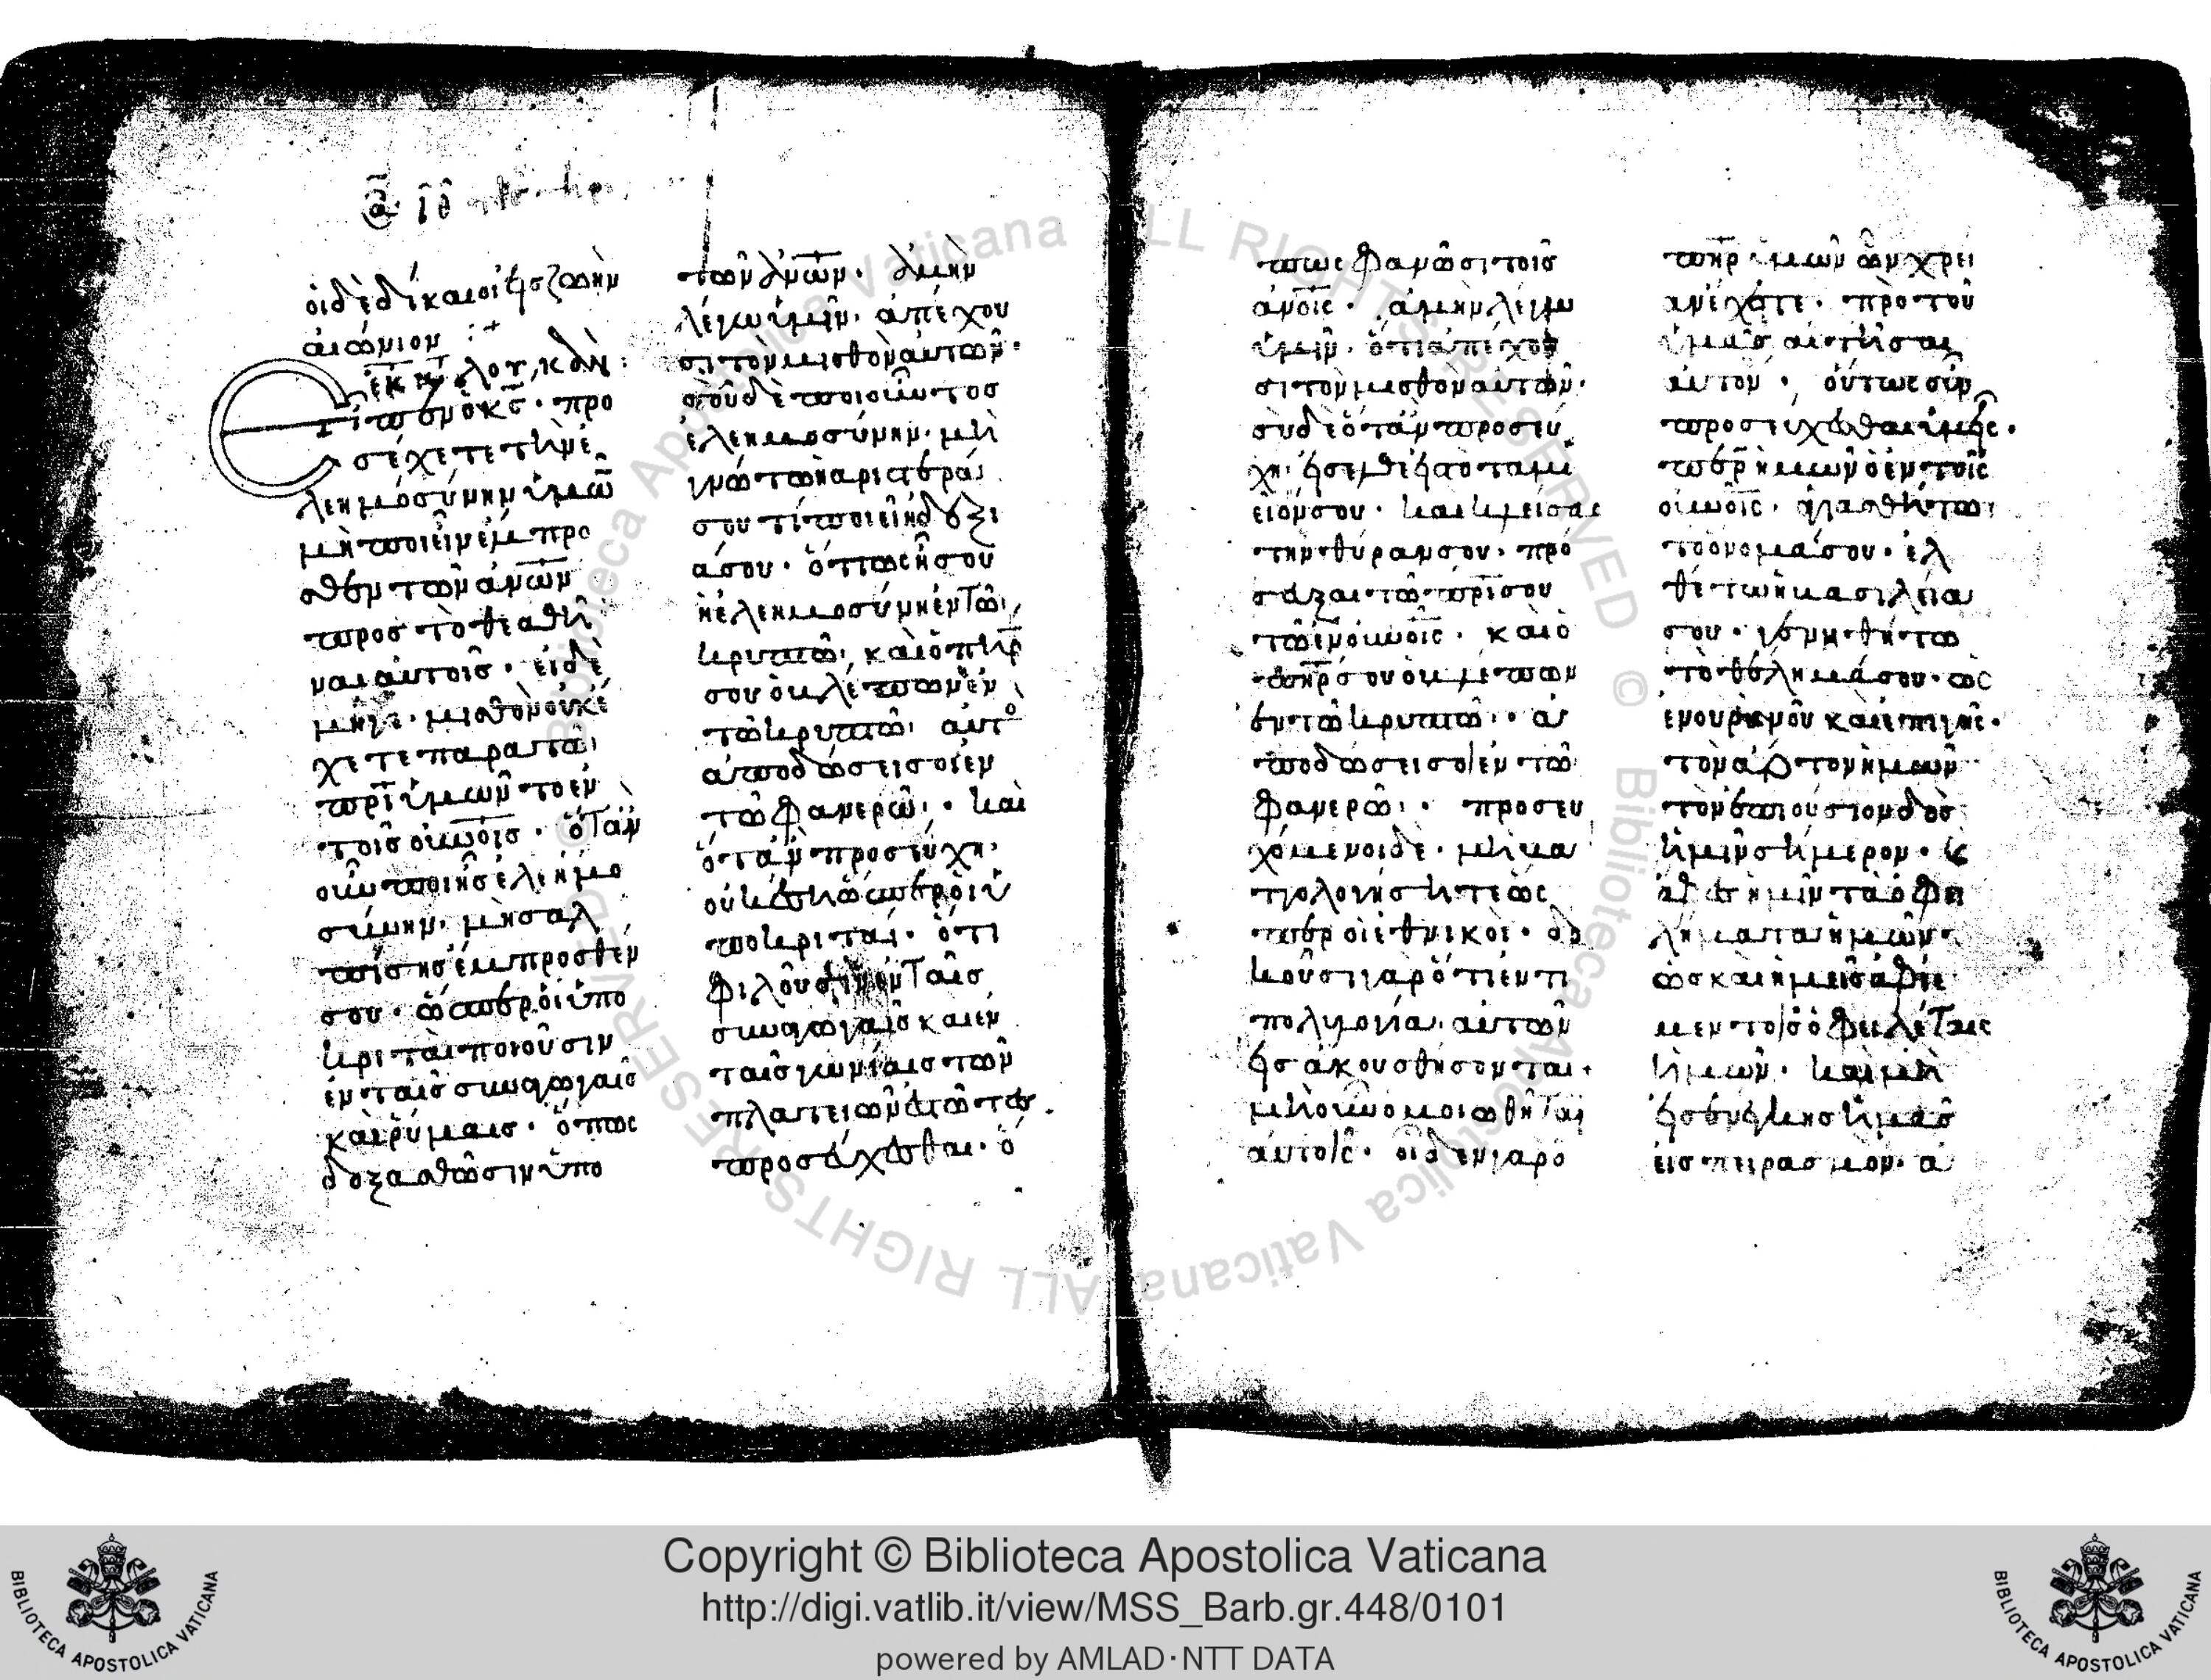 οἱ δὲ δίκαιοι εἰς ζωὴν
αἰώνιον :+
Εἶπεν ὁ κς̅· προ
σέχετε τὴν ἐ
λεημοσύνην ὑμῶ̅
μὴ ποιεῖν ἔμπρο
σθεν τῶν ἀν̅ω̅ν
προσ τὸ θεαθῆ
ναι αὐτοῖσ· εἰ δὲ
μήγε· μισθὸν οὐκ ἔ
χετε παρα τῶ
πρ̅ϊ ὑμῶν τῶ ἐν
τοῖσ οὐν̅οῖσ· ὅταν
οὖν ποιῆσ ἐλεημο
σύνην· μὴ σαλ
πίσησ ἔμπροσθέν
σου· ὥσπερ οἱ ὑπο
κριταὶ ποιοῦσιν
ἐν ταῖσ συναγωγαῖσ
καὶ ῥύμαισ· ὅπως
δοξασθῶσιν ὑπο
τῶν ἀν̅ω̅ν· ἀμὴν
λέγω ὑμῖν· ἀπέχου
σι τὸν μισθὸν αὐτῶν·
σοῦ δὲ ποιοῦντοσ
ἐλεημοσύνην· μὴ
γνώτω ἡ ἀριστερά
σου τί ποιεῖ ἡ δεξι
ά σου· ὅπως ἦ σου
ἡ ἐλεημοσύνη ἐν τῶ
κρυπτῶ, καὶ ὁ πη̅ρ
σου ὁ βλέπων ἐν
τῶ κρυπτῶ αὐτο
ἀποδώσει σοι ἐν
τῶ φανερῶ· καὶ
ὅταν προσεύχη·
οὐκ ἔση ὥσπερ οἱ ὑ
ποκριταί· ὅτι
φιλοῦσιν ἐν ταῖσ
συναγωγαῖσ καὶ ἐν
ταῖσ γωνίαισ τῶν
πλατειῶν ἑστῶτες
προσεύχεσθαι· ὅ
πως φανῶσι τοῖσ
ἀν̅οις· ἀμὴν λέγω
ὑμῖν· ὅτι ἀπέχου
σι τὸν μισθὸν αὐτῶν·
σὺ δὲ ὅταν προσεύ
χη· εἴσελθε εἰς τὸ ταμι
εῖόν σου· καὶ κλείσας
την θύραν σου· πρό
σευξαι τῶ πρ̅ί σου
τῶ ἐν οὐν̅οῖς· καὶ ὁ
πη̅ρ σου ὁ βλέπων
ἐν τῶ κρυπτῶ· ἀ
ποδώσει σοι ἐν τῶ
φανερῶ· προσευ
χόμενοι δὲ· μὴ βα
ττολογήσητε ὡς
περ οἱ ἐθνικοί· δο
κοῦσι γὰρ ὅτι ἐν τῆ
πολυλογία αὐτῶν
εἰσακουσθήσονται·
μὴ οὖν ὁμοιωθῆται
αὐτοῖς· οἶδεν γὰρ ὁ
πη̅ρ ὑμῶν ὧν χρεί
αν ἔχετε· πρὸ τοῦ
ὑμᾶσ αἰτῆσαι
αὐτόν· οὕτως οὖν
προσεύχεσθαι ὑμεῖς·
πε̅ρ ἡμῶν ὁ ἐν τοῖς
οὐν̅οῖς· ἁγιασθήτω
τὸ ὄνομά σου· ἐλ
θέτω ἡ βασιλεία
σου· γενηθήτω
τὸ θέλημά σου· ὡς
ἐν οὐρανῶ καὶ ἐπι γῆς·
τὸν ἄρτον ἡμῶν
τὸν ἐπιούσιον δὸσ
ἡμῖν σήμερον· κ
ἄφες ἡμῖν τὰ ὀφει
λήματα ἡμῶν·
ὡσ καὶ ἡμεῖσ ἀφίε
μεν τοῖσ ὀφειλέταις
ἡμῶν· καὶ μὴ
εἰσενέγκησ ἡμᾶσ
εἰσ πειρασμον· ἀ
ALL RIGHTS RESERVED © Biblioteca Apostolica Vaticana
Copyright © Biblioteca Apostolica Vaticana
http://digi.vatlib.it/view/MSS_Barb.gr.448/0101
powered by AMLAD·NTT DATA
BIBLIOTECA APOSTOLICA VATICANA
BIBLIOTECA APOSTOLICA VATICANA